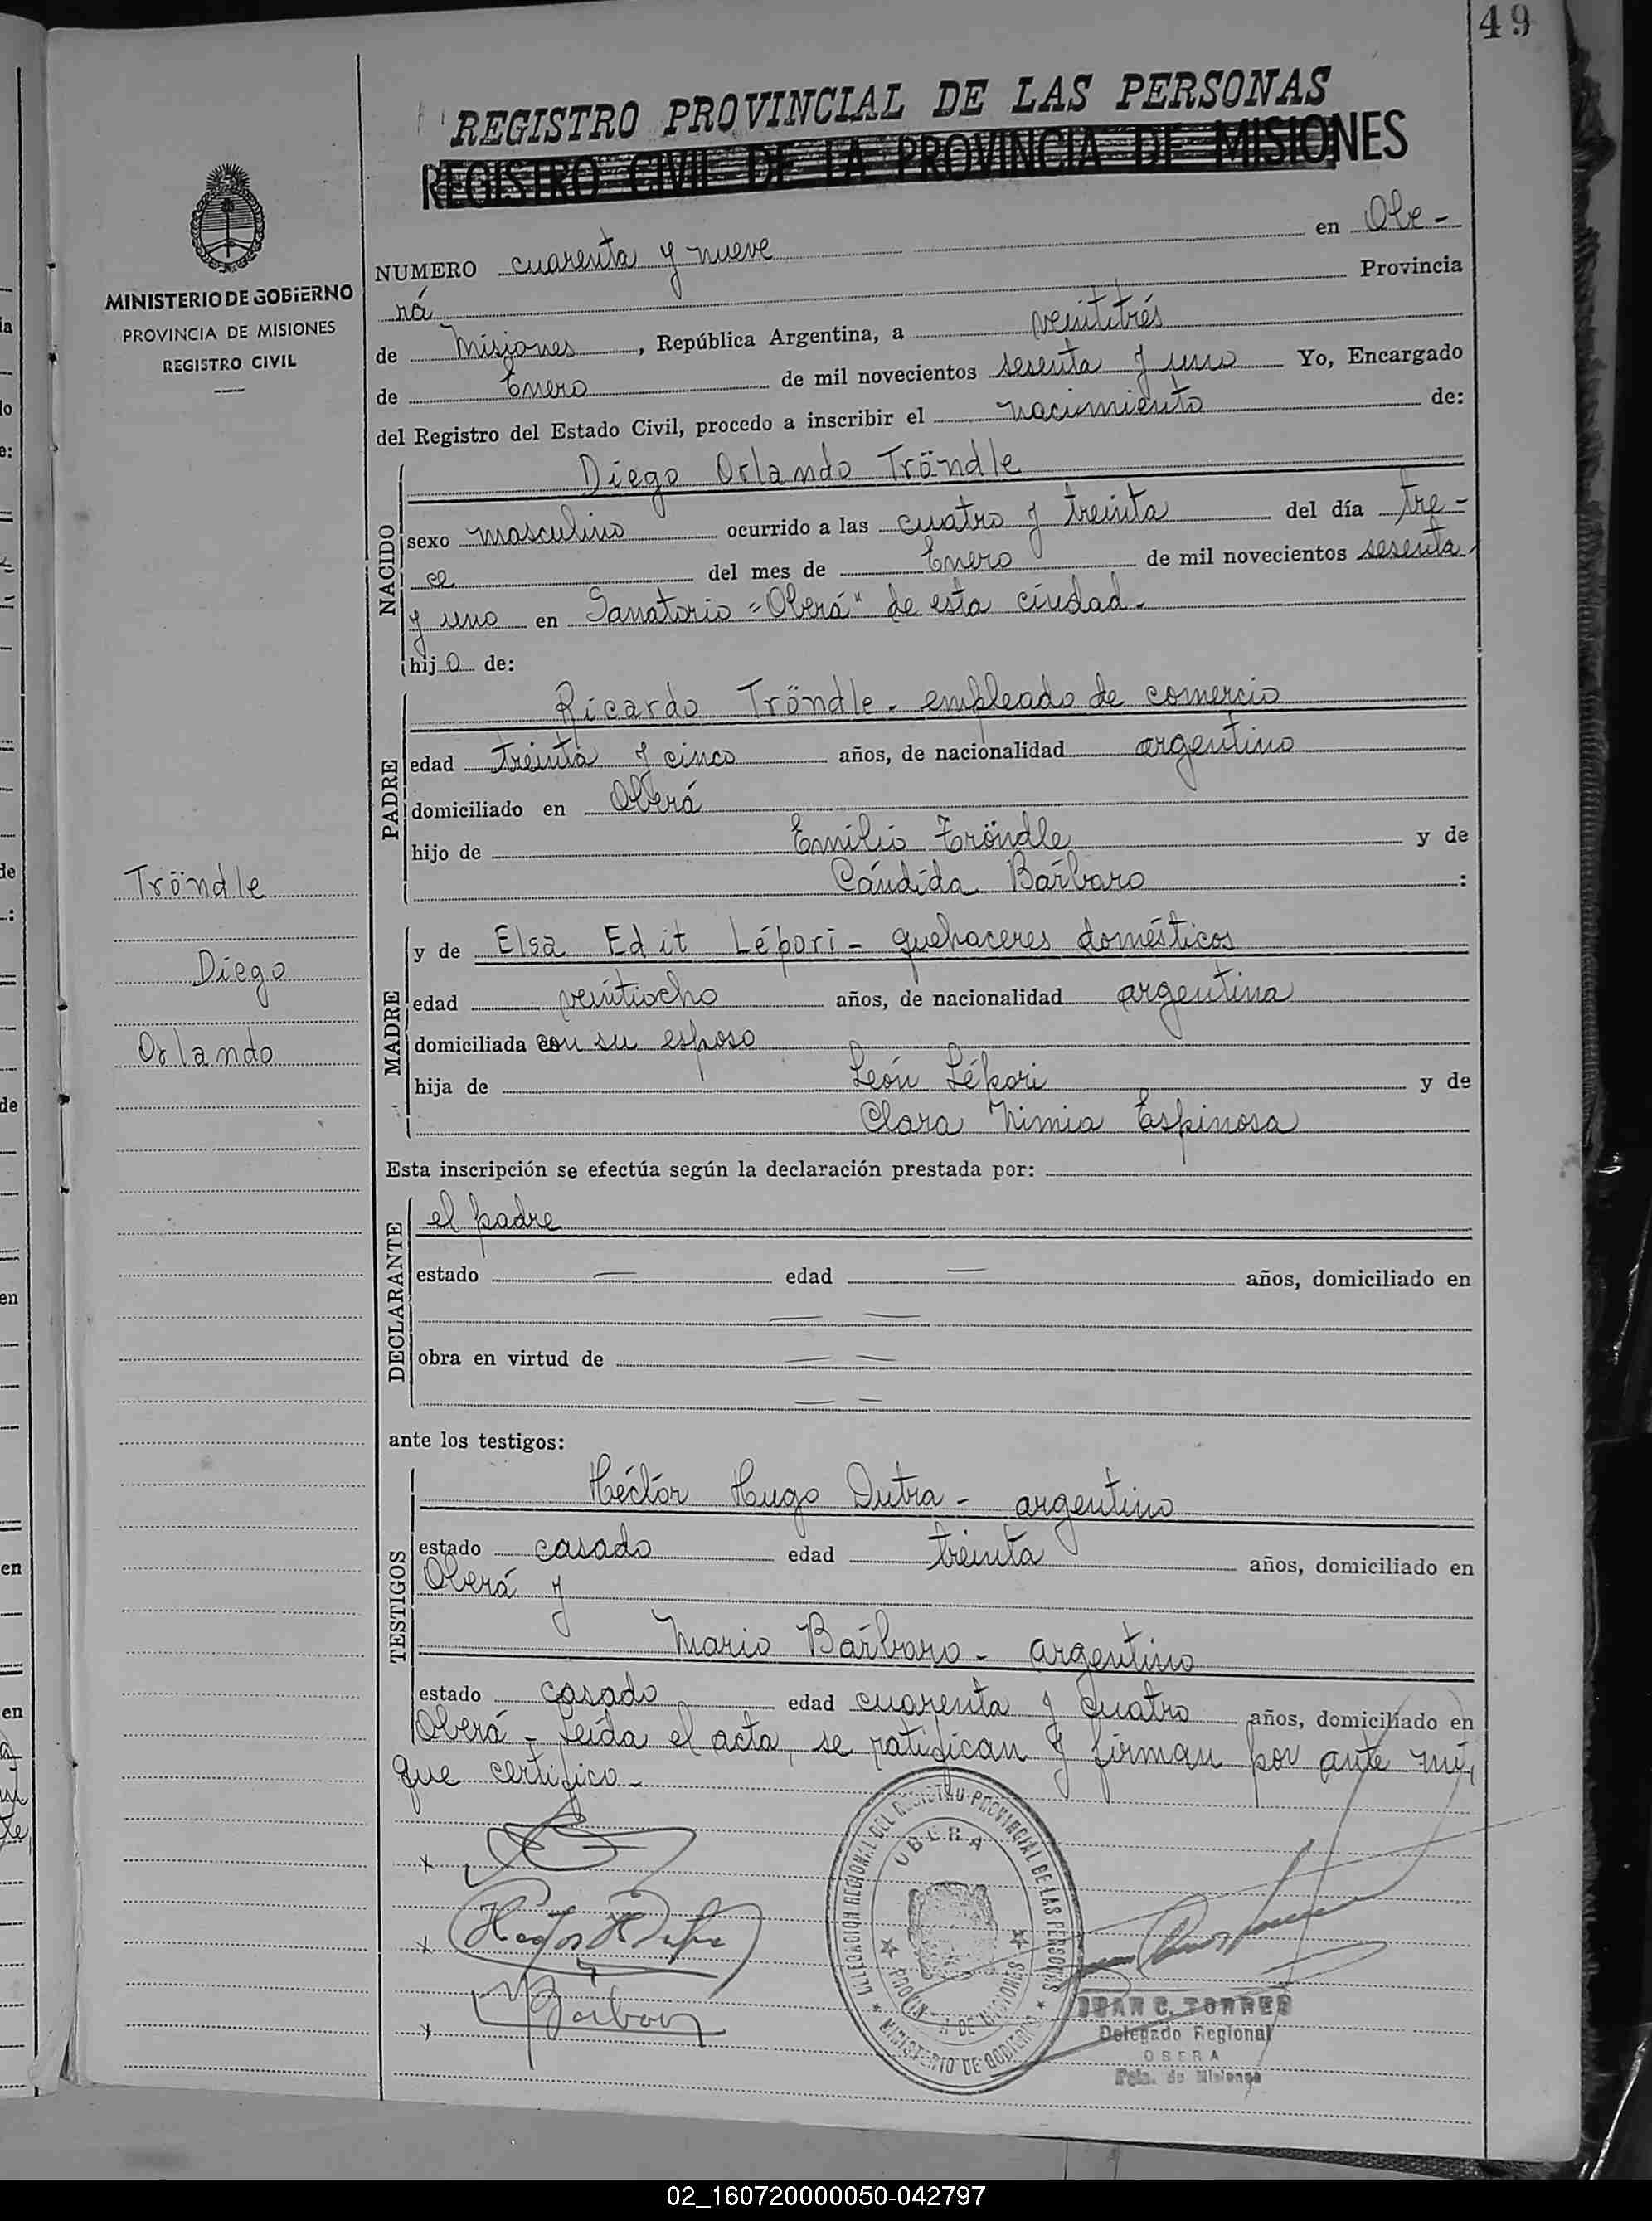 49
REGISTRO PROVINCIAL DE LAS PERSONAS
REGISTRO CIVIL DE LA PROVINCIA DE MISIONES
MINISTERIO DE GOBIERNO
PROVINCIA DE MISIONES
REGISTRO CIVIL
NUMERO cuarenta y nueve en Obe-
rá Provincia
de Misiones, República Argentina, a veintitrés
de Enero de mil novecientos sesenta y uno Yo, Encargado
del Registro del Estado Civil, procedo a inscribir el nacimiento de:
NACIDO
Diego Orlando Tröndle
sexo masculino ocurrido a las cuatro y treinta del día tre-
ce del mes de Enero de mil novecientos sesenta
y uno en Sanatorio "Oberá" de esta ciudad.
hijo de:
PADRE
Ricardo Tröndle - empleado de comercio
edad treinta y cinco años, de nacionalidad argentino
domiciliado en Oberá
hijo de Emilio Tröndle y de
Cándida Bárbaro :
Tröndle
Diego
Orlando
MADRE
y de Elsa Edit Lépori - quehaceres domésticos
edad veintiocho años, de nacionalidad argentina
domiciliada con su esposo
hija de León Lépori y de
Clara Nimia Espinosa
Esta inscripción se efectúa según la declaración prestada por:
DECLARANTE
el padre
estado — edad — años, domiciliado en
— —
obra en virtud de — —
— —
ante los testigos:
TESTIGOS
Héctor Hugo Dutra - argentino
estado casado edad treinta años, domiciliado en
Oberá y
Mario Bárbaro - argentino
estado casado edad cuarenta y cuatro años, domiciliado en
Oberá - Leída el acta, se ratifican y firman por ante mí,
que certifico -
DELEGACION REGIONAL DEL REGISTRO PROVINCIAL DE LAS PERSONAS
OBERA
PROVINCIA DE MISIONES
MINISTERIO DE GOBIERNO
JUAN C. TORRES
Delegado Regional
OBERA
Pcia. de Misiones
02_160720000050-042797